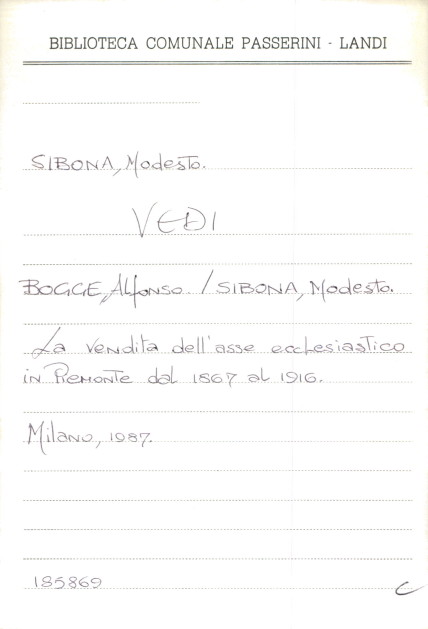 BIBLIOTECA COMUNALE PASSERINI - LANDI
SIBONA, Modesto.
VEDI
BOGGE, Alfonso. / SIBONA, Modesto.
La vendita dell'asse ecclesiastico
in Piemonte dal 1867 al 1916.
Milano, 1987.
185869
C